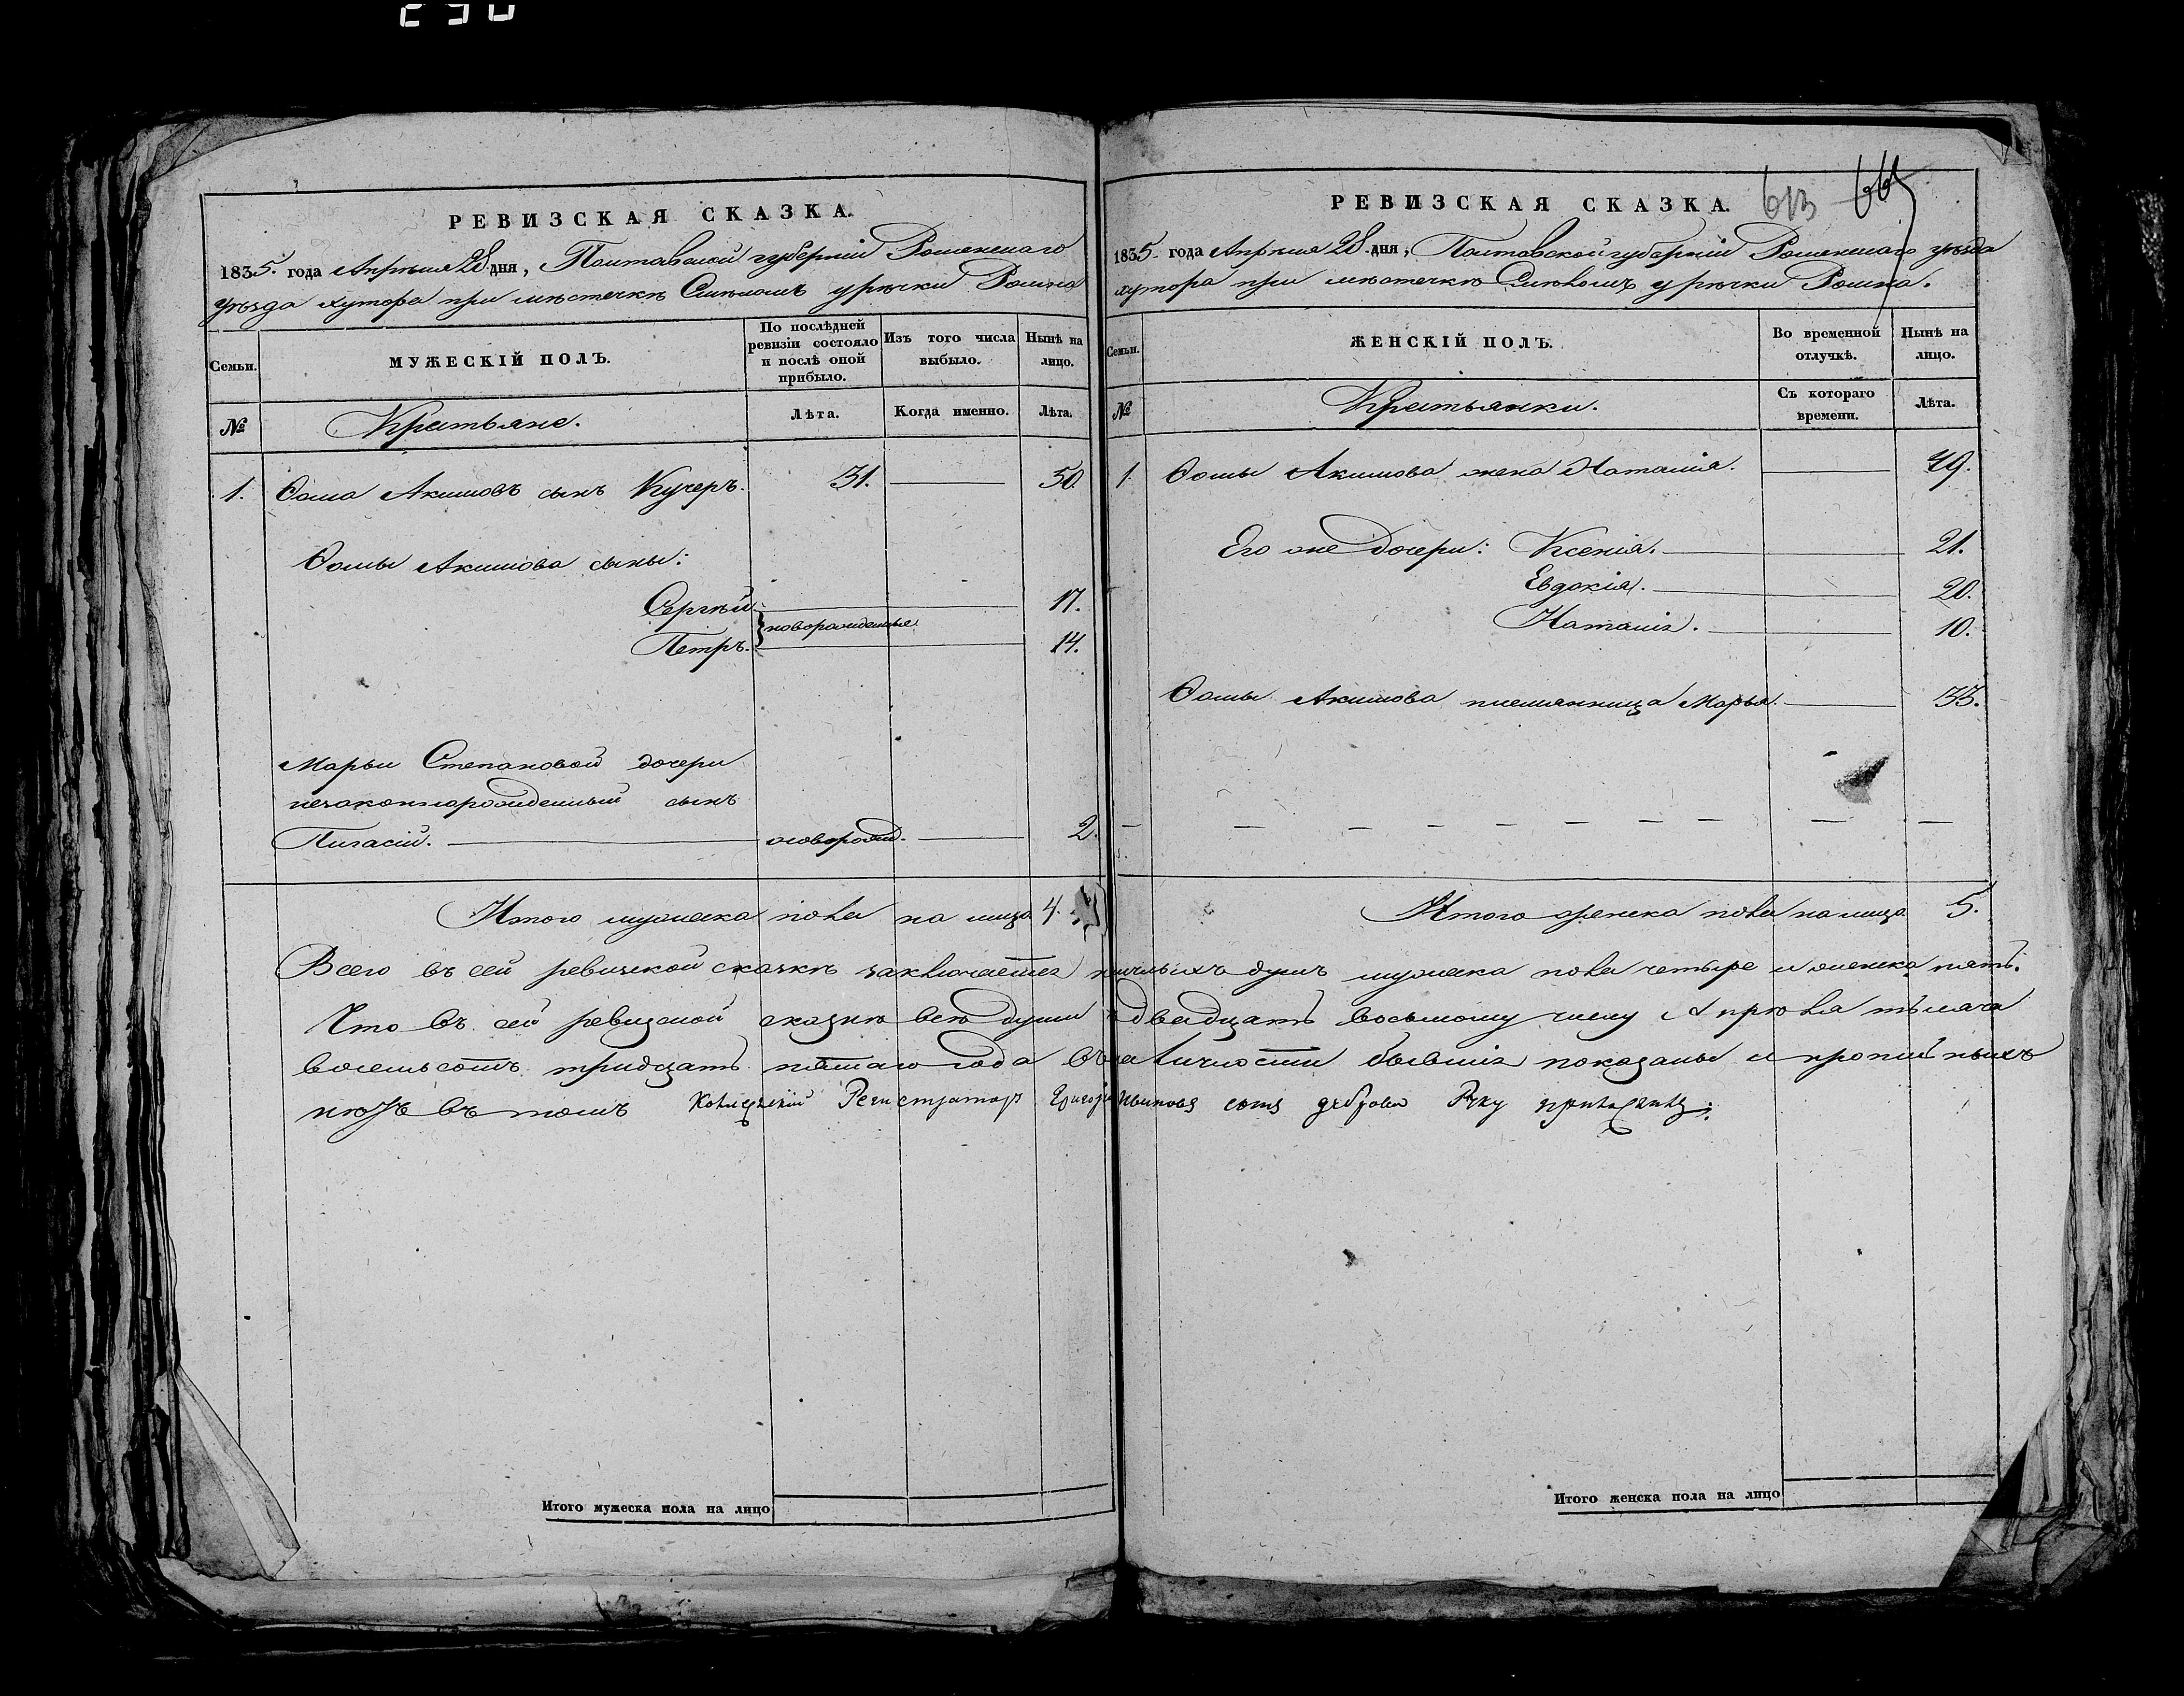 230
РЕВИЗСКАЯ СКАЗКА.
1835. года Апрѣля 28 дня, Полтавской губерніи Роменскаго
уѣзда хутора при мѣстечкѣ Смѣломъ у рѣчки Ромна
Семьи.
МУЖЕСКІЙ ПОЛЪ.
По послѣдней ревизіи состояло и послѣ оной прибыло.
Изъ того числа выбыло.
Нынѣ на лицо.
№
Крестьяне.
Лѣта.
Когда именно.
Лѣта.
1. Ѳома Акимовъ сынъ Кучеръ. 31. 50.
Ѳомы Акимова сыны:
Сергѣй 17.
новорожденные
Петръ. 14.
Марьи Степановой дочери
незаконнорожденный сынъ
Пигасій. новорожд. 2.
Итого мужеска пола на лицо 4.
РЕВИЗСКАЯ СКАЗКА.
613 665
1835 года Апрѣля 28 дня, Полтавской губерніи Роменскаго уѣзда
хутора при мѣстечкѣ Смѣломъ у рѣчки Ромна.
Семьи.
ЖЕНСКІЙ ПОЛЪ.
Во временной отлучкѣ.
Нынѣ на лицо.
№
Крестьянки.
Съ котораго времени.
Лѣта.
1. Ѳомы Акимова жена Наталія. 49.
Его же дочери: Ксенія. 21.
Евдокія. 20.
Наталія. 10.
Ѳомы Акимова племянница Марья. 33.
Итого женска пола на лицо 5.
Всего въ сей ревизской сказкѣ заключается душъ мужеска пола четыре и женска пять.
Что въ сей ревизской сказкѣ всѣ души двадцать восьмому числу Апрѣля тысяча
восемьсотъ тридцать пятаго года въ наличности бывшія показаны и
нѣтъ въ томъ Регистраторъ Григорій сынъ руку
Итого мужеска пола на лицо
Итого женска пола на лицо